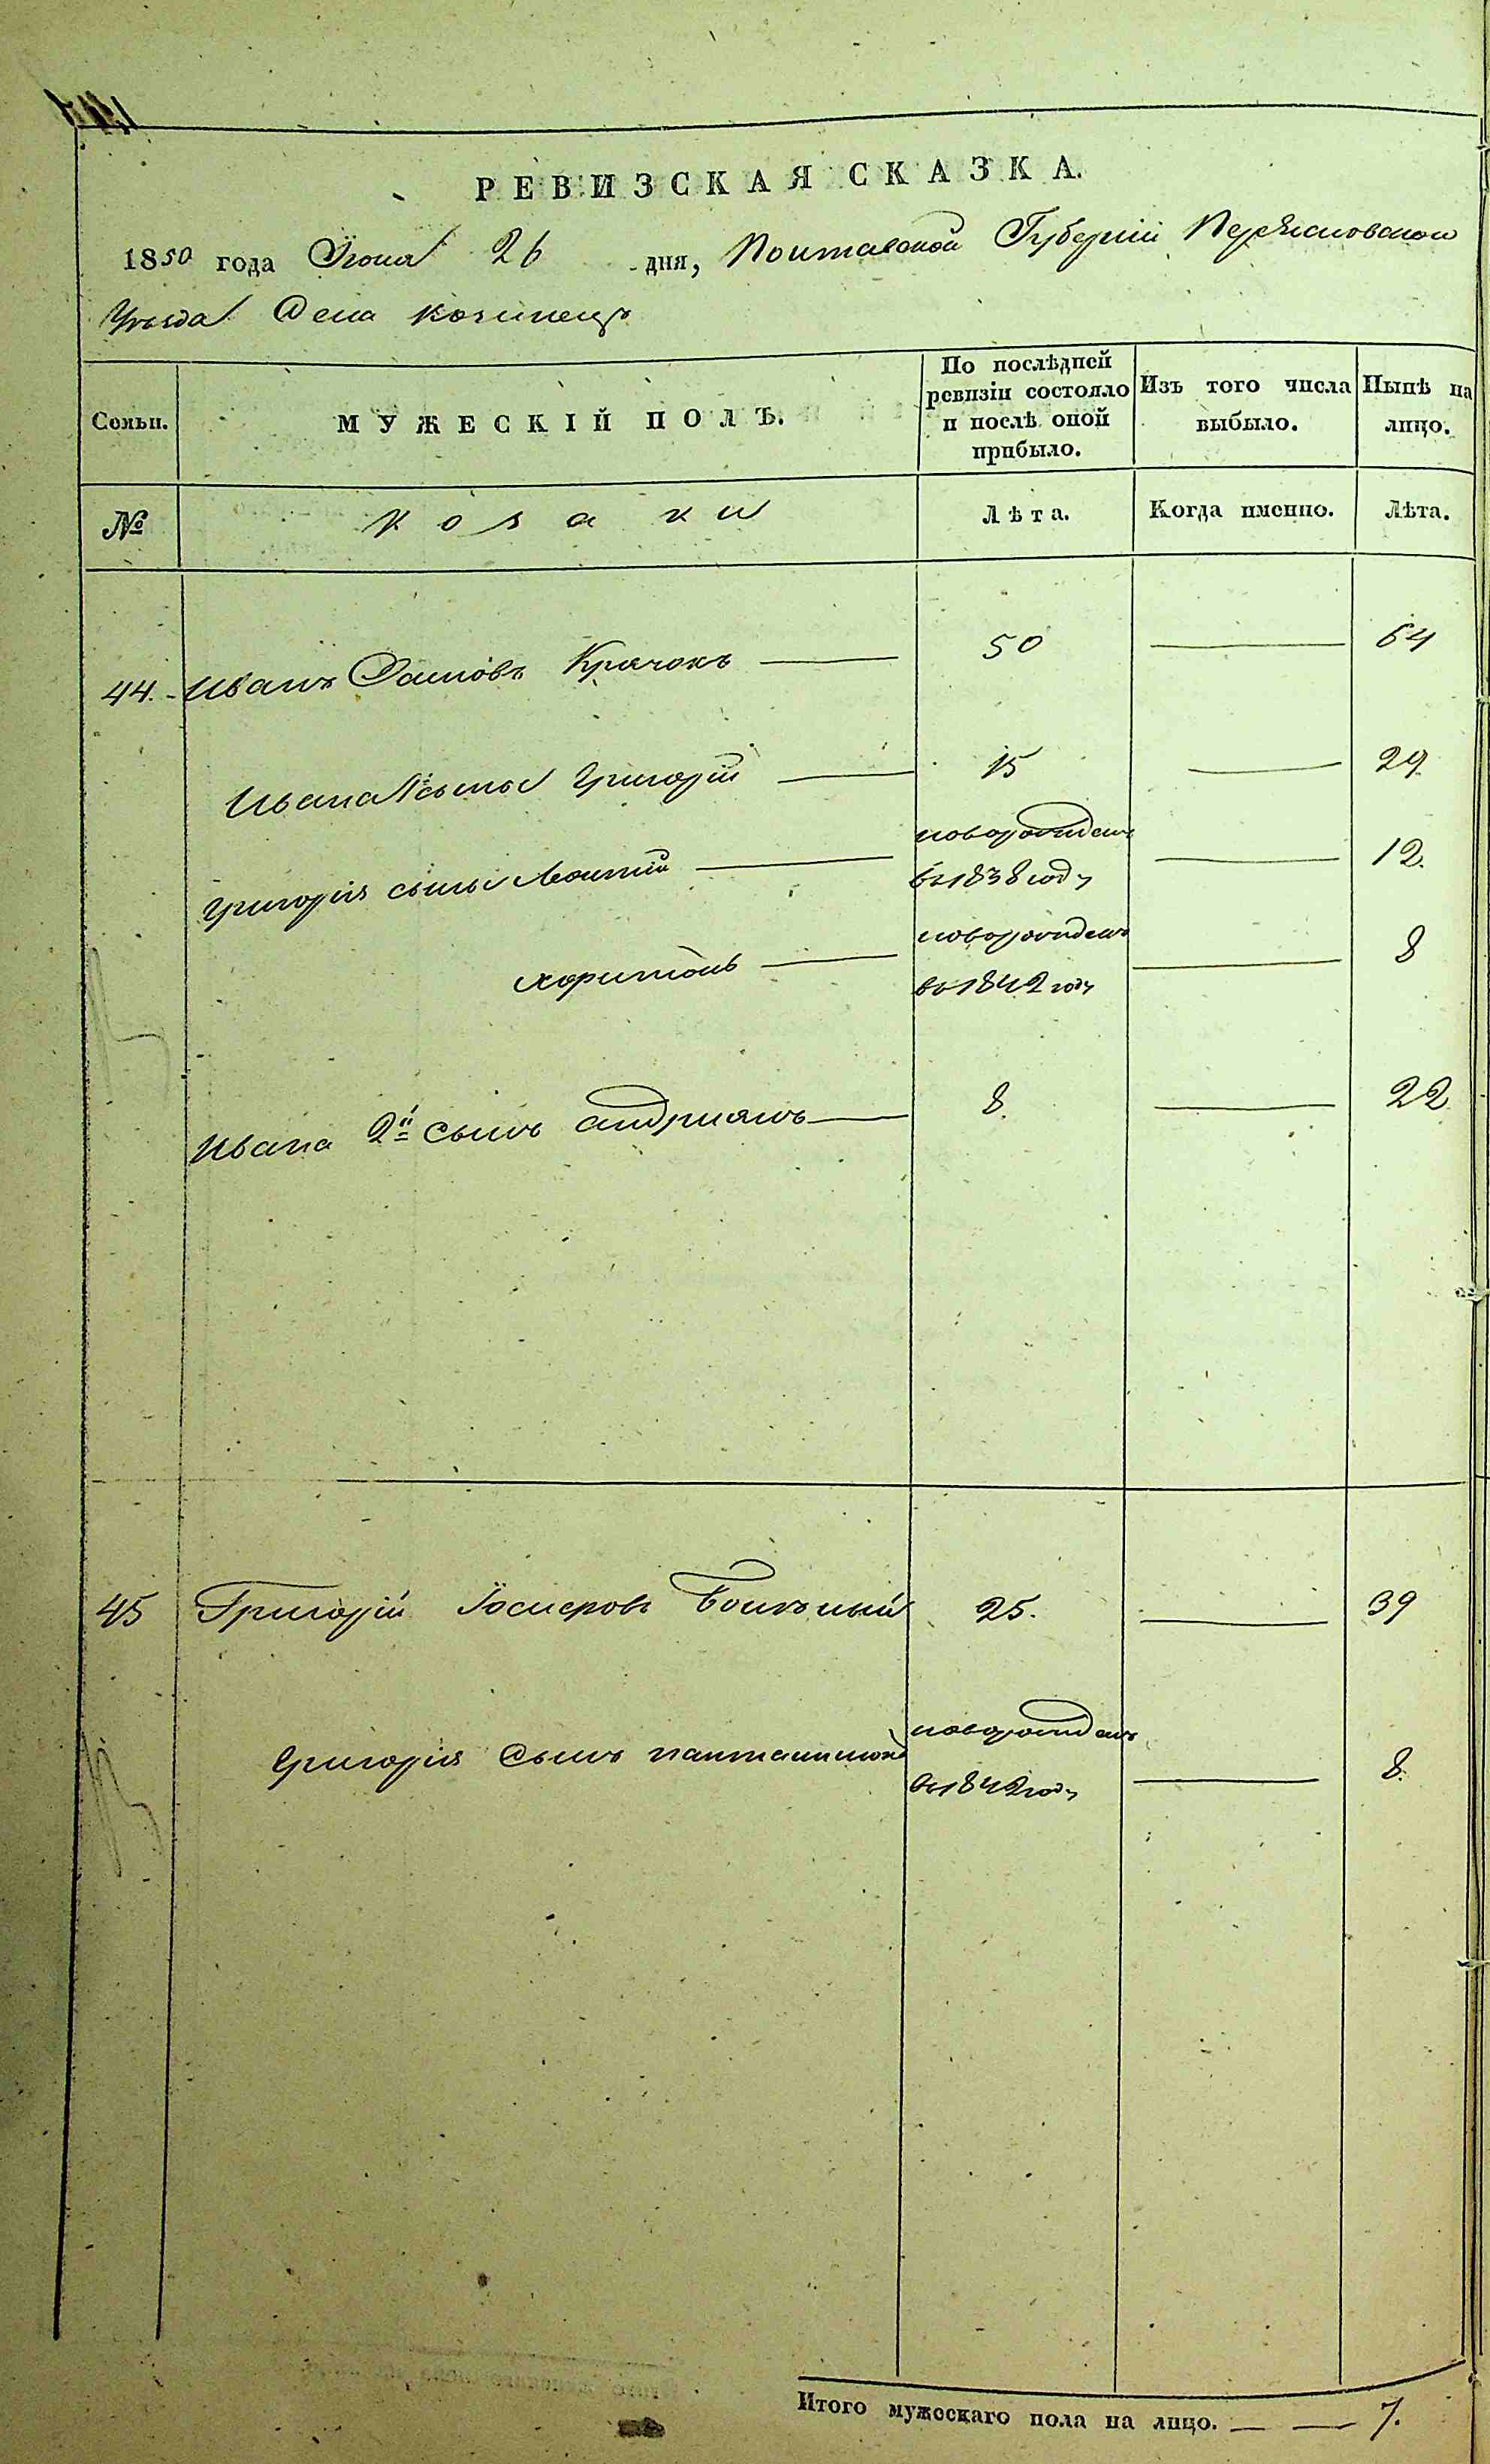 РЕВИЗСКАЯ СКАЗКА.
1850 года Іюня 26 дня, Полтавской Губерніи Переяславскаго
Уѣзда Села Козинецъ
Семьи.
МУЖЕСКІЙ ПОЛЪ.
По послѣдней ревизіи состояло и послѣ оной прибыло.
Изъ того числа выбыло.
Нынѣ на лицо.
№
Козаки
Лѣта.
Когда именно.
Лѣта.
44. Иванъ Крячокъ — 50 — 64
Ивана сынъ Григорій — 15 — 29
Григорія сынъ Леонтій — новорожденъ въ 1838 году — 12.
Харитонъ — новорожденъ въ 1842 году — 8
Ивана 2й сынъ Андриянъ — 8. — 22
45 Григорій 25. — 39
Григорія сынъ Пантелимонъ новорожденъ въ 1842 году — 8.
Итого мужескаго пола на лицо. — — 7.